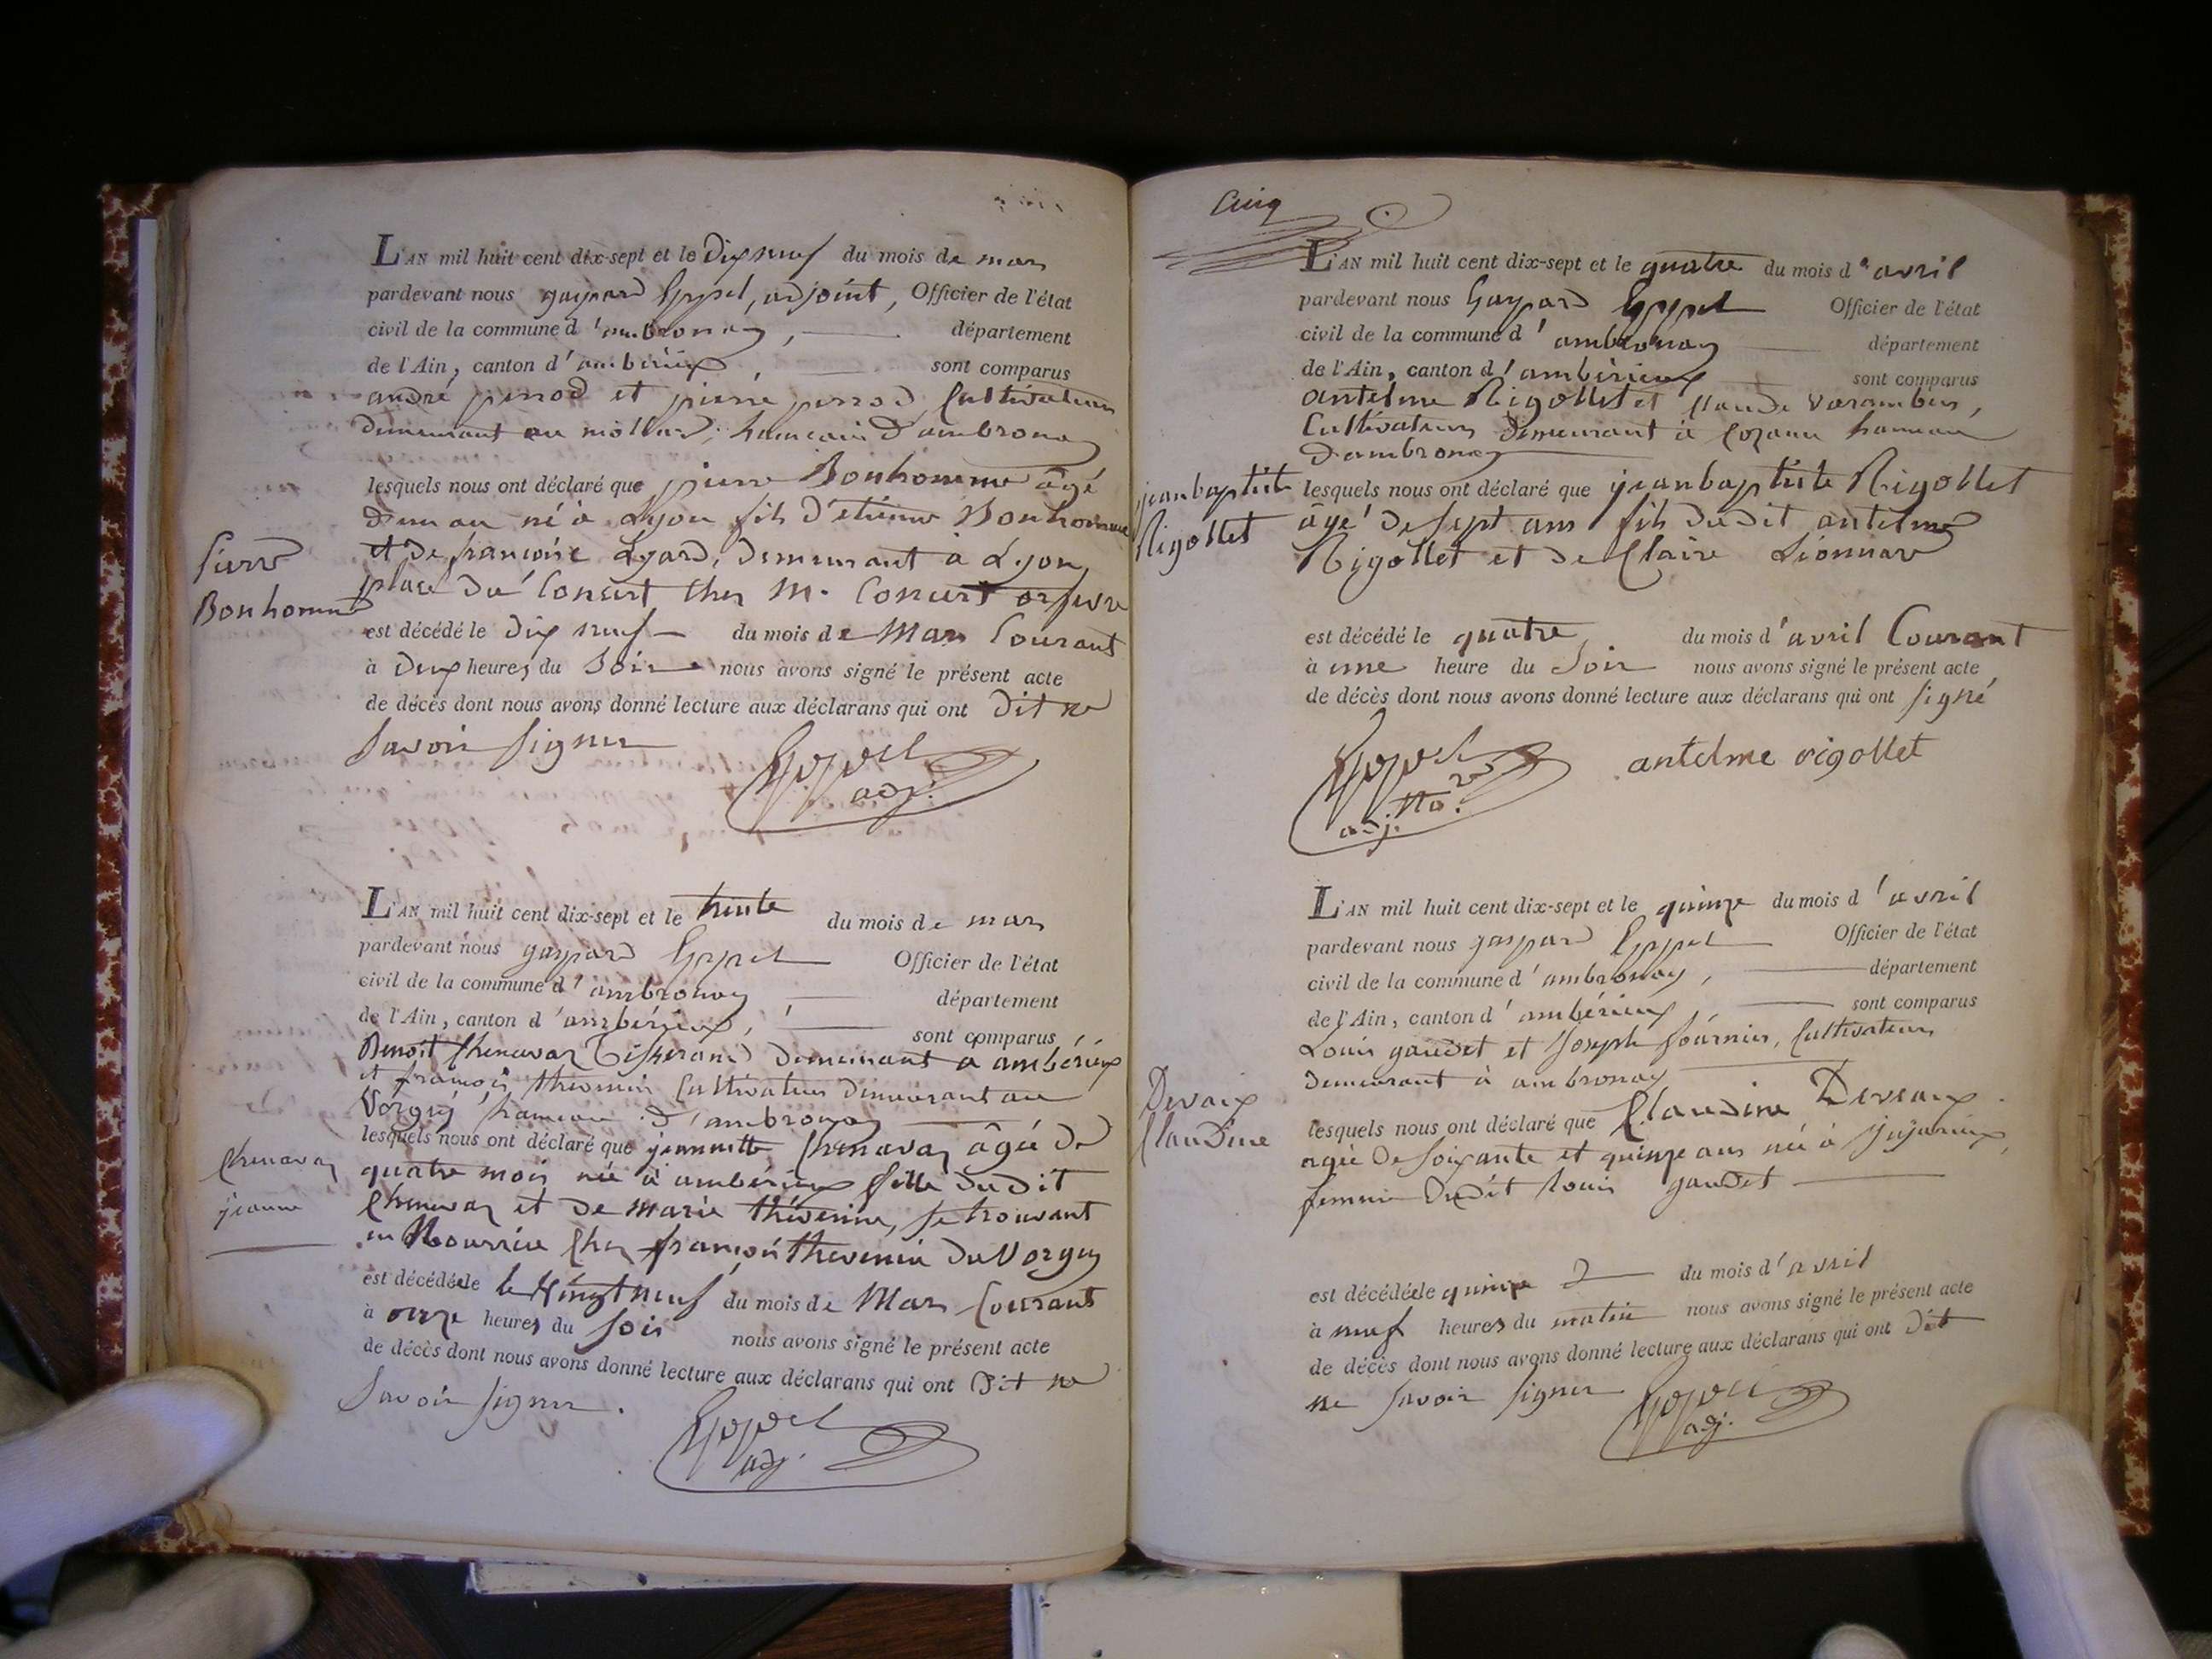 L'AN mil huit cent dix-sept et le Dix neuf du mois de mars
pardevant nous gaspard Eppel, adjoint, Officier de l'état
civil de la commune d'ambronay, département
de l'Ain, canton d'ambérieux, sont comparus
andré perrod et pierre perrod Cultivateurs
demeurant au mollard, hameau d'ambronay
lesquels nous ont déclaré que pierre Bonhomme âgé
d'un an né à Lyon fils d'étienne Bonhomme
et de francoise Lyard, demeurant à Lyon
place du Concert Chez M. Concert orfevre
Pierre
Bonhomme
est décédé le dix neuf du mois de Mars Courant
à Deux heures du Soir nous avons signé le présent acte
de décès dont nous avons donné lecture aux déclarans qui ont Dit ne
Savoir Signer
adj.
L'AN mil huit cent dix-sept et le trente du mois de mars
pardevant nous gaspard Eppel Officier de l'état
civil de la commune d'ambronay, département
de l'Ain, canton d'ambérieux, sont comparus
Benoit Chenavaz Tisserand demeurant a ambérieux
et francois thevenin Cultivateur demeurant au
Vorgey hameau d'ambronay
lesquels nous ont déclaré que jeannette Chenavaz âgée de
quatre mois née à ambérieux fille dudit
Chenavaz et de marie thévenin, se trouvant
en Nourrice Chez francois thevenin du Vorgey
Chenavaz
jeanne
est décédée le le Vingt neuf du mois de Mars Courant
à onze heures du Soir nous avons signé le présent acte
de décès dont nous avons donné lecture aux déclarans qui ont Dit ne
Savoir signer.
adj.
Cinq
L'AN mil huit cent dix-sept et le quatre du mois d'avril
pardevant nous Gaspard Eppel Officier de l'état
civil de la commune d'ambronay département
de l'Ain, canton d'ambérieux sont comparus
antelme Rigollet et Claude Varambon,
Cultivateurs demeurant à Cozance hameau
d'ambronay
jeanbaptiste
Rigollet
lesquels nous ont déclaré que jeanbaptiste Rigollet
âgé de sept ans fils dudit antelme
Rigollet et de Claire Lionnar
est décédé le quatre du mois d'avril Courant
à une heure du Soir nous avons signé le présent acte
de décès dont nous avons donné lecture aux déclarans qui ont signé
antelme rigollet
adj.
L'AN mil huit cent dix-sept et le quinze du mois d'avril
pardevant nous gaspard Eppel Officier de l'état
civil de la commune d'ambronay, département
de l'Ain, canton d'ambérieux sont comparus
Louis gaudet et Joseph fournier, Cultivateurs
demeurant à ambronay
Devaix
Claudine
lesquels nous ont déclaré que Claudine Deveaux
agée de soixante et quinze ans née à Jujurieux,
femme dudit louis gaudet
est décédée le quinze du mois d'avril
à neuf heures du matin nous avons signé le présent acte
de décès dont nous avons donné lecture aux déclarans qui ont Dit
ne Savoir Signer
adj.